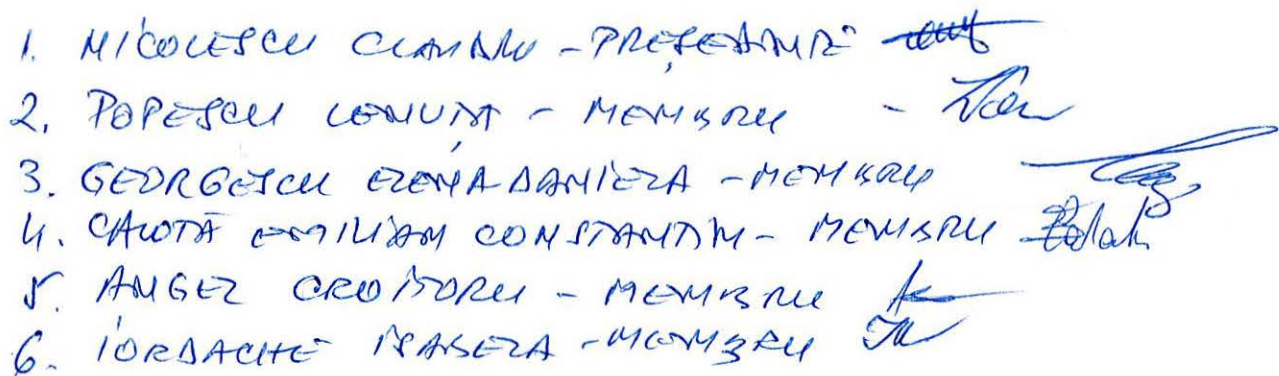 1. NICOLESCU CLAUDIU - PREȘEDINTE
2. POPESCU IONUȚ - MEMBRU -
3. GEORGESCU ELENA-DANIELA - MEMBRU
4. CALOTĂ EMILIAN CONSTANTIN - MEMBRU
5. ANGEL CROITORU - MEMBRU
6. IORDACHE ISABELA - MEMBRU